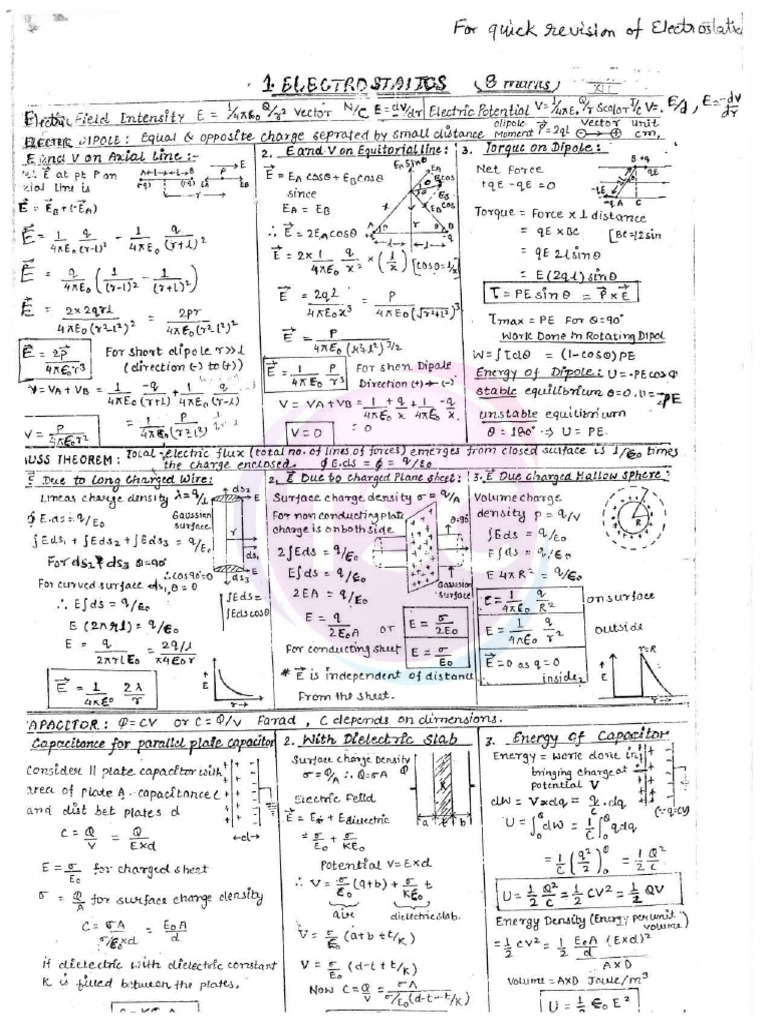 For quick revision of Electrostatic
1. ELECTROSTATICS (8 marks) XII
Electric Field Intensity E = 1/4πε₀ Q/r² vector N/C E = dv/dr Electric Potential V = 1/4πε₀ Q/r Scalar J/C V = E/d, E = -dv/dr
ELECTRIC DIPOLE: Equal & opposite charge seprated by small distance dipole Moment P = 2ql vector unit cm,
E and V on Axial line:-
Let E at pt P on
axial line is
E = E_B + (-E_A)
E = 1/4πε₀ q/(r-l)² - 1/4πε₀ q/(r+l)²
E = q/4πε₀ (1/(r-l)² - 1/(r+l)²)
E = 2×2qrl/4πε₀(r²-l²)² = 2pr/4πε₀(r²-l²)²
E = 2p/4πε₀r³ For short dipole r>>l
(direction (-) to (+))
V = V_A + V_B = 1/4πε₀ -q/(r+l) + 1/4πε₀ q/(r-l)
V = P/4πε₀r² = 1/4πε₀ P/(r²-l²)
2. E and V on Equitorial line:
E = E_A cosθ + E_B cosθ
since
E_A = E_B
∴ E = 2E_A cosθ
E = 2×1/4πε₀ q/x² × (l/x) [cosθ = l/x]
E = 2ql/4πε₀x³ = P/4πε₀(√r²+l²)³
E = P/4πε₀(r²+l²)^3/2
E = 1/4πε₀ P/r³ For short Dipole
Direction (+) → (-)
V = V_A + V_B = 1/4πε₀ +q/x + 1/4πε₀ -q/x.
V = 0 = 0
3. Torque on Dipole:
Net Force
+qE - qE = 0
Torque = Force × ⊥ distance
= qE × BC [BC = l2sin
= qE 2l sinθ
= E(2ql) sinθ
τ = PE sinθ = P×E
τmax = PE For θ = 90°
Work Done in Rotating Dipol
W = ∫τdθ = (1-cosθ) PE
Energy of Dipole: U = -PE cosθ
stable equilibrium θ=0. U = -PE
unstable equilibrium
θ = 180° ⇒ U = PE.
USS THEOREM: Total electric flux (total no. of lines of forces) emerges from closed surface is 1/ε₀ times
the charge enclosed. ∮E.ds = ϕ = q/ε₀
E Due to Long Charged Wire:
Linear charge density λ = q/l
∮E.ds = q/ε₀ Gaussian
surface
∫Eds₁ + ∫Eds₂ + ∫Eds₃ = q/ε₀
For ds₂ & ds₃ θ=90°
∴ cos90=0
For curved surface ds₁, θ=0
∴ E∫ds = q/ε₀ ∫Eds = ∫Eds cosθ
E (2πrl) = q/ε₀
E = q/2πrlε₀ = 2q/l/4πε₀r
E = 1/4πε₀ 2λ/r
2. E Due to charged Plane sheet:
Surface charge density σ = q/A
For non conducting plate
charge is on both side
2∫Eds = q/ε₀
E∫ds = q/ε₀
2EA = q/ε₀ Gaussian
surface
E = q/2ε₀A or E = σ/2ε₀
For conducting sheet E = σ/ε₀
* E is independent of distance
From the sheet.
3. E Due charged Hallow sphere:
Volume charge
density ρ = q/v
∫Eds = q/ε₀
E∫ds = q/ε₀
E 4πR² = q/ε₀
E = 1/4πε₀ q/R² on surface
E = 1/4πε₀ q/r² outside
E = 0 as q = 0 inside.
r=R
APACITOR: Q = CV or C = Q/V Farad, C depends on dimensions.
Capacitance for parallel plate capacitor
Consider II plate capacitor with
area of plate A. capacitance C
and dist bet plates d
C = Q/V = Q/E×d
E = σ/ε₀ for charged sheet
σ = Q/A for surface charge density
C = σA/σ/ε₀×d = ε₀A/d
if dielectric with dielectric constant
K is filled between the plates.
2. With Dielectric Slab
Surface Charge Density
σ = Q/A ∴ Q = σA
Electric Feild
E = E₀ + Edielectric
= σ/ε₀ + σ/Kε₀
Potential V = E×d
∴ V = σ/ε₀ (a+b) + σ/Kε₀ t
air dielectric slab.
V = σ/ε₀ (a+b+t/K)
V = σ/ε₀ (d-t+t/K)
Now C = Q/V = σA/σ/ε₀(d-t-t/K)
3. Energy of Capacitor
Energy = work done in
bringing charge at
potential V
dW = V×dq = q/C.dq (∵ q=CV)
U = ∫₀^Q dW = 1/C ∫₀^Q q dq
= 1/C (q²/2)₀^Q = 1/2 Q²/C
U = 1/2 Q²/C = 1/2 CV² = 1/2 QV
Energy Density (Energy per unit volume)
= 1/2 CV² = 1/2 ε₀A/d (E×d)²/A×D
Volume = A×D Joule/m³
U = 1/2 ε₀E²